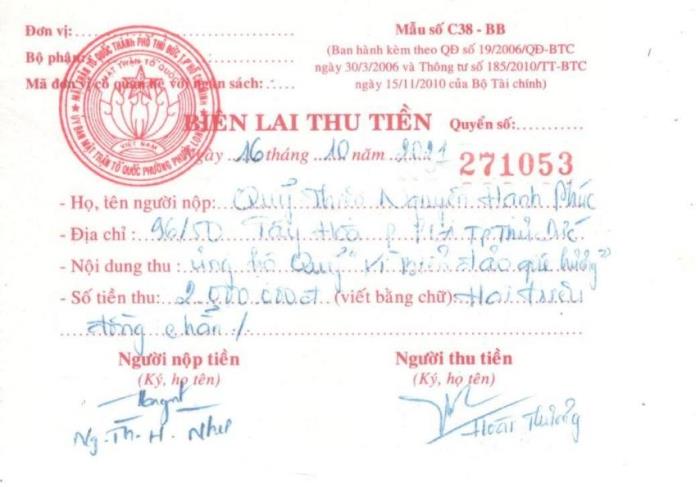 Đơn vị:
Bộ phận:
Mã đơn vị có quan hệ với ngân sách:
Mẫu số C38 - BB
(Ban hành kèm theo QĐ số 19/2006/QĐ-BTC
ngày 30/3/2006 và Thông tư số 185/2010/TT-BTC
ngày 15/11/2010 của Bộ Tài chính)
ỦY BAN MẶT TRẬN TỔ QUỐC PHƯỜNG PHƯỚC LONG
MẶT TRẬN TỔ QUỐC THÀNH PHỐ THỦ ĐỨC T.P HỒ CHÍ MINH
MẶT TRẬN TỔ QUỐC
VIỆT NAM
BIÊN LAI THU TIỀN Quyển số:
Ngày 16 tháng 10 năm 2021
271053
- Họ, tên người nộp: Quỹ Thiện Nguyện Hạnh Phúc
- Địa chỉ : 96/5D Tây Hoà P TP Thủ Đức
- Nội dung thu : ủng hộ Quỹ "Vì biển đảo quê hương"
- Số tiền thu: 2.000.000đ (viết bằng chữ) Hai triệu
đồng chẵn /.
Người nộp tiền
(Ký, họ tên)
Người thu tiền
(Ký, họ tên)
Ng. Th. H. Như
Hoài Thương